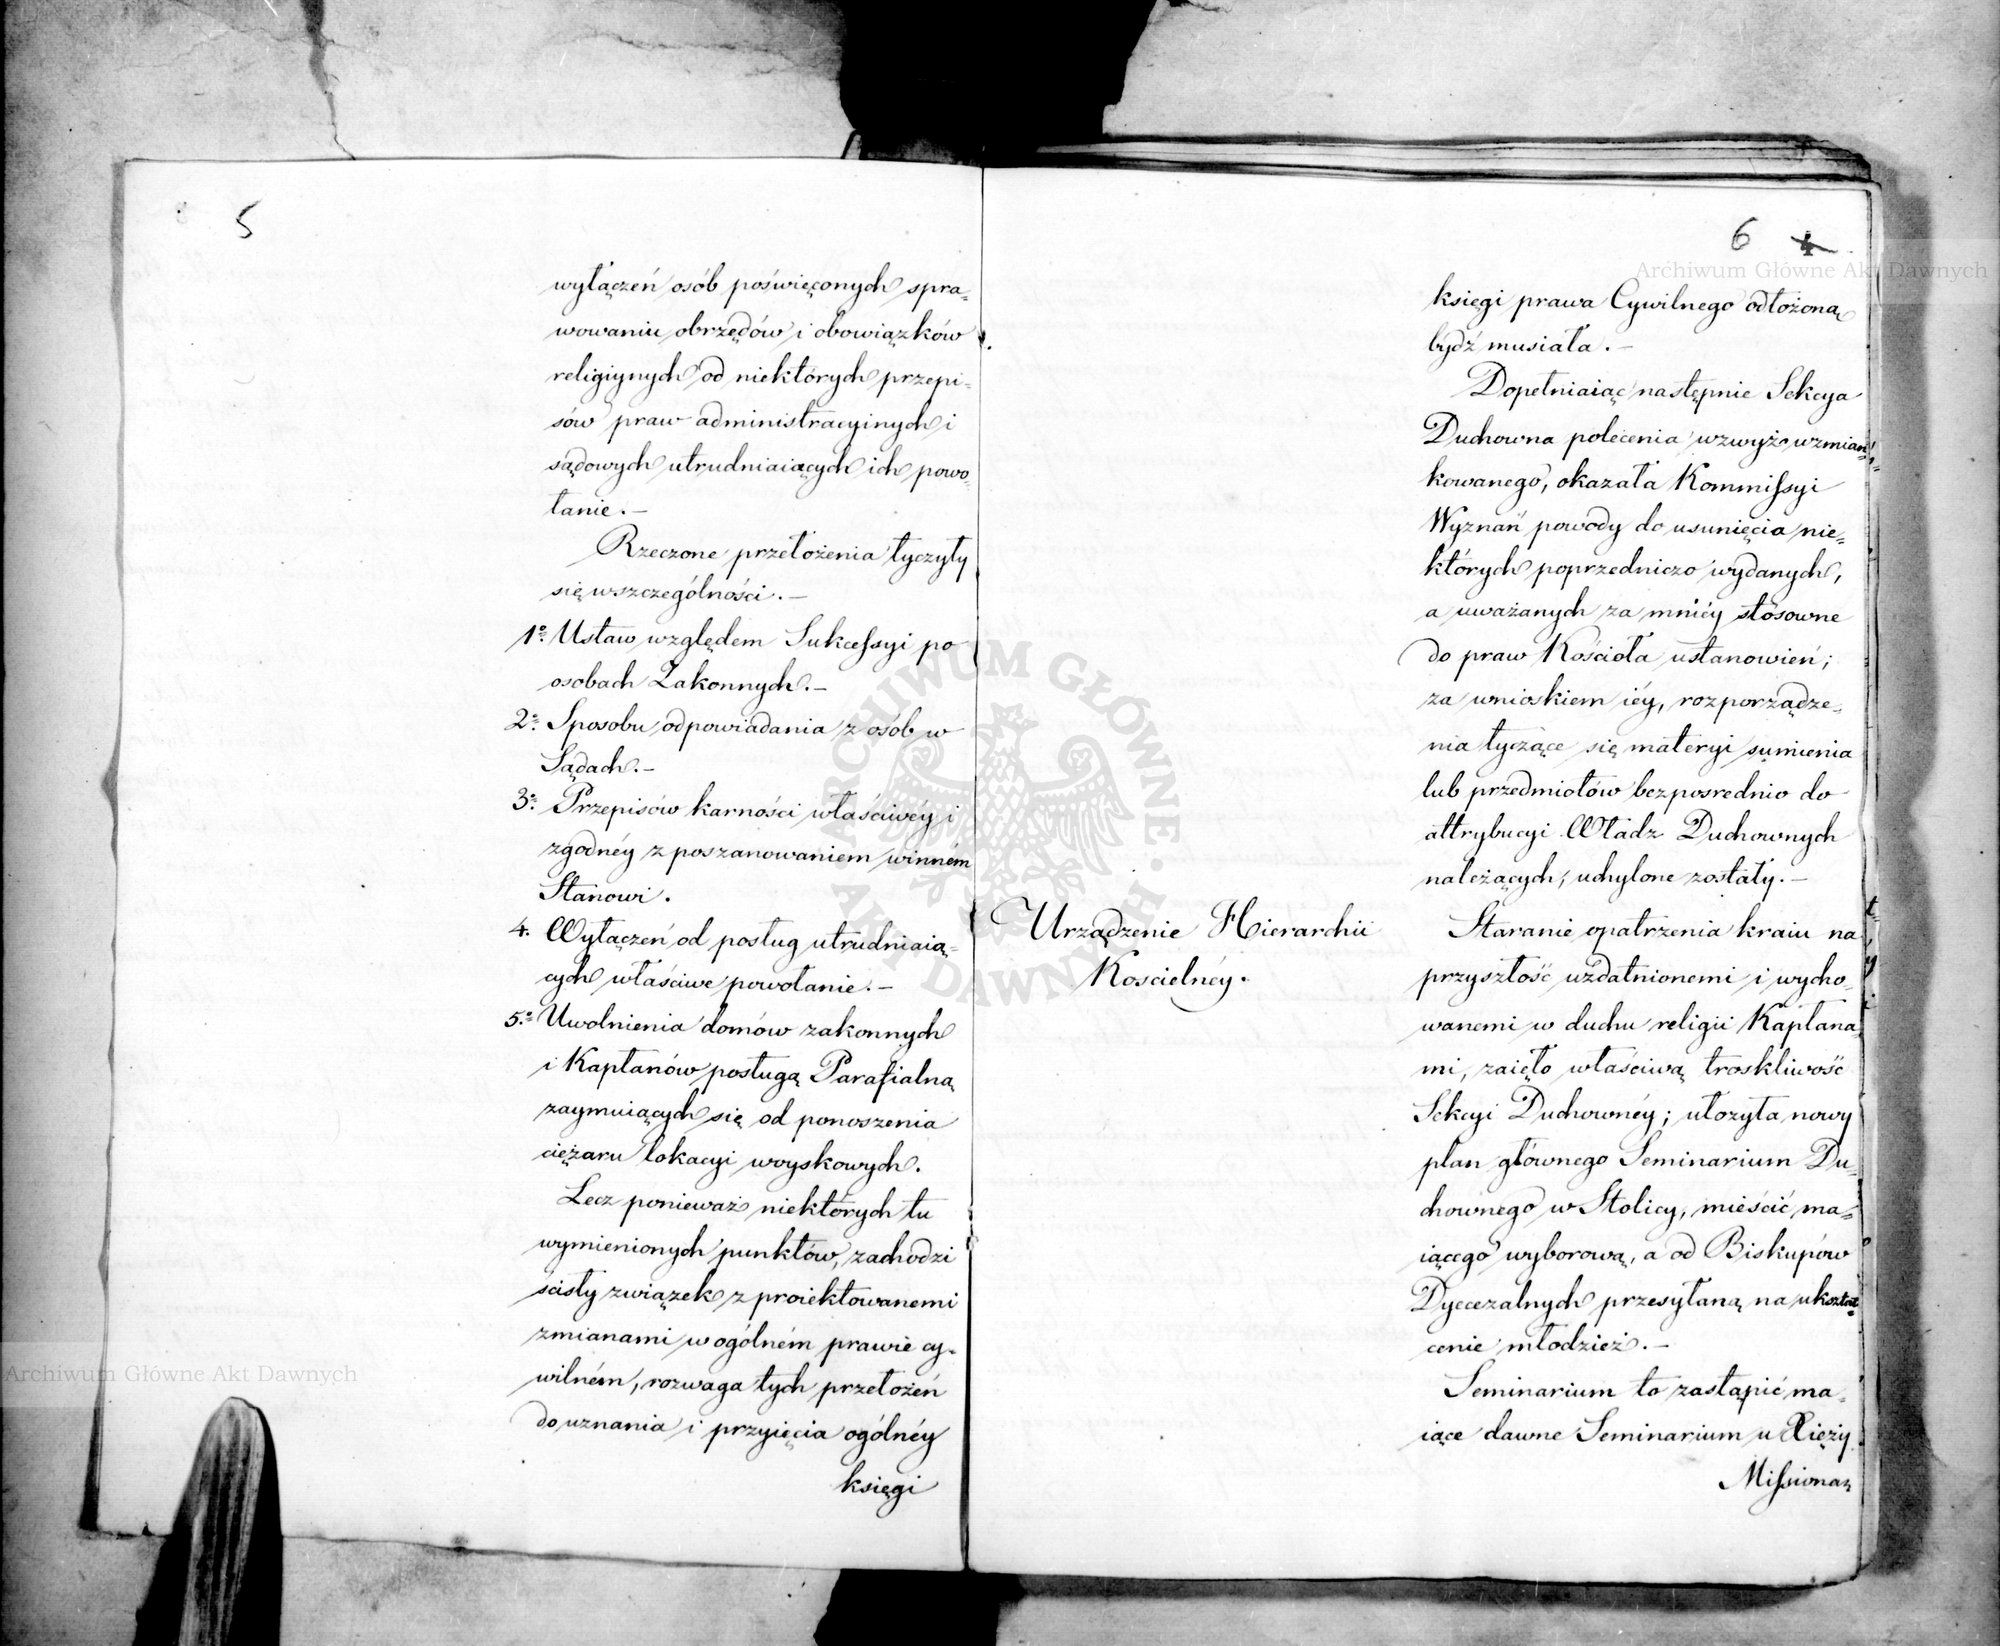 5
wyłączeń osób poświęconych spra=
wowaniu obrzędów i obowiązków
religiynych od niektórych przepi=
sów praw administracyinych i
sądowych utrudniaiących ich powo=
łanie.—
Rzeczone przełożenia tyczyły
się wszczególności.—
1º Ustaw względem Sukcessyi po
osobach Zakonnych.—
2º Sposobu odpowiadania z osób w
Sądach.—
3º Przepisów karności właściwéy i
zgodnéy z poszanowaniem winném
Stanowi.
4. Wyłączeń od posług utrudniaią=
cych właściwe powołanie.—
5º Uwolnienia domów zakonnych
i Kapłanów posługą Parafialną
zaymuiących się od ponoszenia
ciężaru lokacyi woyskowych.
Lecz ponieważ niektórych tu
wymienionych punktów, zachodzi
scisły związek z proiektowanemi
zmianami w ogólném prawie cy=
wilném, rozwaga tych przełożeń
do uznania i przyięcia ogólnéy
księgi
6 4
Archiwum Główne Akt Dawnych
księgi prawa Cywilnego odłożoną
bydź musiała.—
Dopełniaiąc następnie Sekcya
Duchowna polecenia wzwyż wzmian=
kowanego, okazała Kommissyi
Wyznań powody do usunięcia nie=
których poprzedniczo wydanych,
a uważanych za mniéy stosowne
do praw Kościoła ustanowień;
za wnioskiem iéy, rozporządze=
nia tyczące się materyi sumienia
lub przedmiotów bezpośrednio do
attrybucyi Władz Duchownych
należących, uchylone zostały.—
Urządzenie Hierarchii
Kościelnéy.
Staranie opatrzenia kraiu na
przyszłość uzdatnionemi i wycho=
wanemi w duchu religii Kapłana
mi, zaięło właściwą troskliwość
Sekcyi Duchownéy; ułożyła nowy
plan głównego Seminarium Du=
chownego w Stolicy, mieścić ma=
iącego wyborową, a od Biskupów
Dyecezalnych przesyłaną na ukształ=
cenie młodzież.—
Seminarium to zastąpić ma=
iące dawne Seminarium u Xięży
Missiona=
ARCHIWUM GŁÓWNE AKT DAWNYCH
Archiwum Główne Akt Dawnych